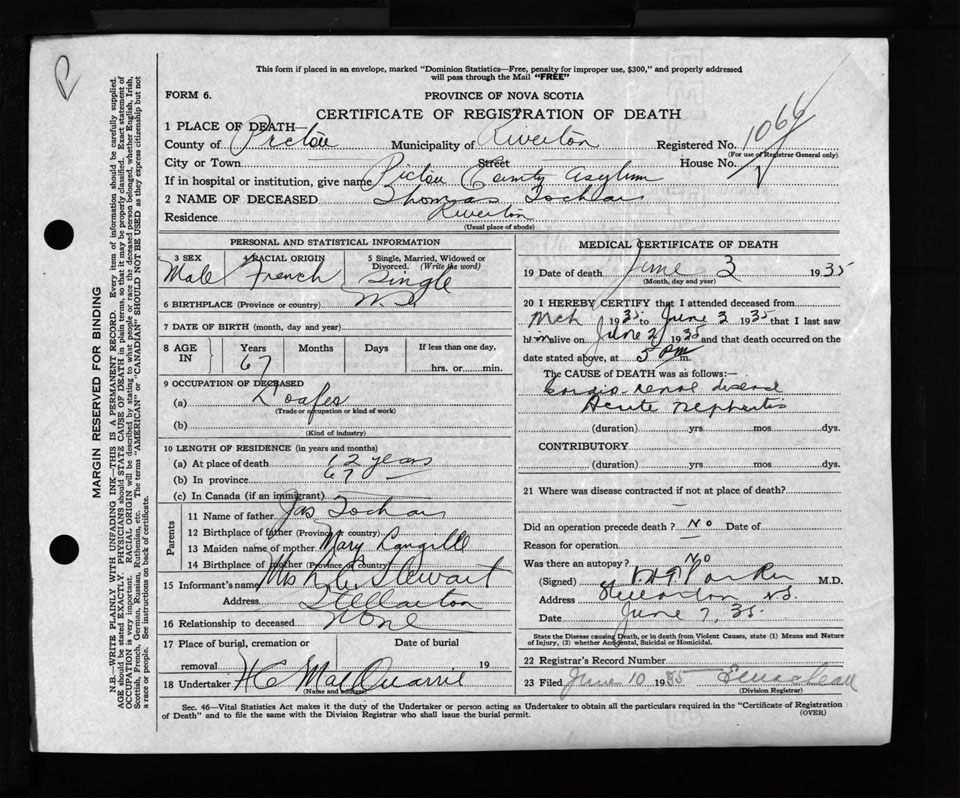 This form if placed in an envelope, marked "Dominion Statistics—Free, penalty for improper use, $300," and properly addressed
will pass through the Mail "FREE"
FORM 6.
PROVINCE OF NOVA SCOTIA
CERTIFICATE OF REGISTRATION OF DEATH
1 PLACE OF DEATH—
County of Pictou Municipality of Riverton Registered No. 1066
(For use of Registrar General only)
City or Town Street House No.
If in hospital or institution, give name Pictou County Asylum
2 NAME OF DECEASED Thomas
Residence Riverton
(Usual place of abode)
PERSONAL AND STATISTICAL INFORMATION
3 SEX 4 RACIAL ORIGIN 5 Single, Married, Widowed or
Divorced. (Write the word)
Male French Single
6 BIRTHPLACE (Province or country) N.S.
7 DATE OF BIRTH (month, day and year)
8 AGE IN Years Months Days If less than one day,
67 hrs. or min.
9 OCCUPATION OF DECEASED
(a)
(Trade or occupation or kind of work)
(b)
(Kind of industry)
10 LENGTH OF RESIDENCE (in years and months)
(a) At place of death years
(b) In province 67
(c) In Canada (if an immigrant)
Parents
11 Name of father Jas
12 Birthplace of father (Province or country)
13 Maiden name of mother Mary Langille
14 Birthplace of mother (Province or country)
15 Informant's name Mrs Stewart
Address Stellarton
16 Relationship to deceased None
17 Place of burial, cremation or Date of burial
removal 19
18 Undertaker H C MacQuarrie
(Name and address)
MEDICAL CERTIFICATE OF DEATH
19 Date of death June 3 1935
(Month, day and year)
20 I HEREBY CERTIFY that I attended deceased from
Mch 1935 to June 3 1935 that I last saw
him alive on June 2 1935 and that death occurred on the
date stated above, at 5 pm m.
The CAUSE of DEATH was as follows:—
Cardio renal disease
Acute Nephritis
(duration) yrs mos dys.
CONTRIBUTORY
(duration) yrs mos dys.
21 Where was disease contracted if not at place of death?
Did an operation precede death? No Date of
Reason for operation
Was there an autopsy? No
(Signed) M.D.
Address N.S.
Date June 7, 35
State the Disease causing Death, or in death from Violent Causes, state (1) Means and Nature
of Injury, (2) whether Accidental, Suicidal or Homicidal.
22 Registrar's Record Number
23 Filed June 10 1935
(Division Registrar)
Sec. 46—Vital Statistics Act makes it the duty of the Undertaker or person acting as Undertaker to obtain all the particulars required in the "Certificate of Registration
of Death" and to file the same with the Division Registrar who shall issue the burial permit. (OVER)
MARGIN RESERVED FOR BINDING
N.B.—WRITE PLAINLY WITH UNFADING INK—THIS IS A PERMANENT RECORD. Every item of information should be carefully supplied.
AGE should be stated EXACTLY. PHYSICIANS should STATE CAUSE OF DEATH in plain terms, so that it may be properly classified. Exact statement of
OCCUPATION is very important. RACIAL ORIGIN will be described by stating to what people or race the deceased person belonged, whether English, Irish,
Scottish, French, German, Russian, Ruthenian, etc. The terms "AMERICAN" or "CANADIAN" SHOULD NOT BE USED as they express citizenship but not
a race or people. See instructions on back of certificate.